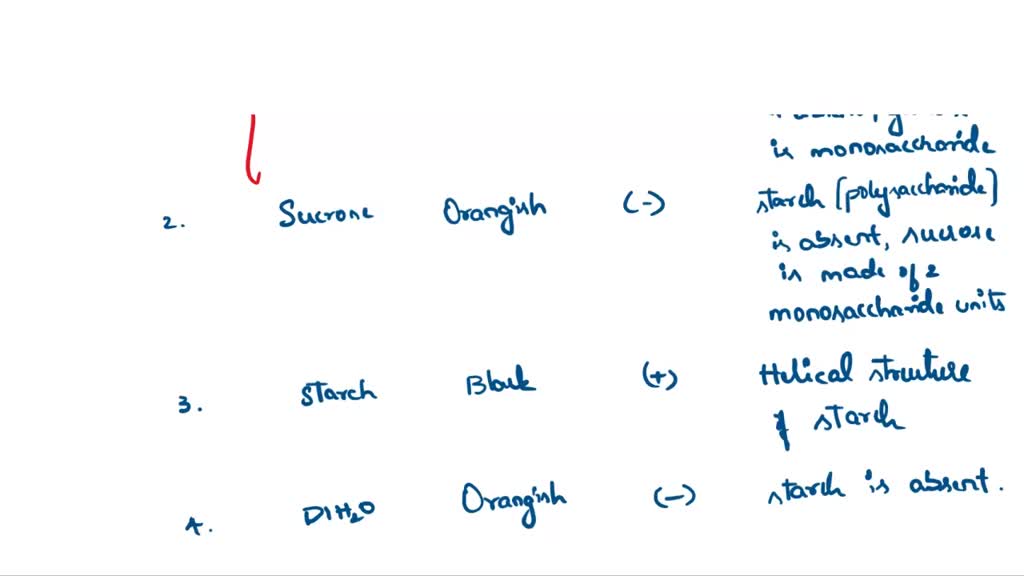 is monosaccharide
2. Sucrose Orangish (-) starch [polysaccharide]
is absent, sucrose
is made of 2
monosaccharide units
3. Starch Black (+) Helical structure
of starch
4. DIH2O Orangish (-) starch is absent.